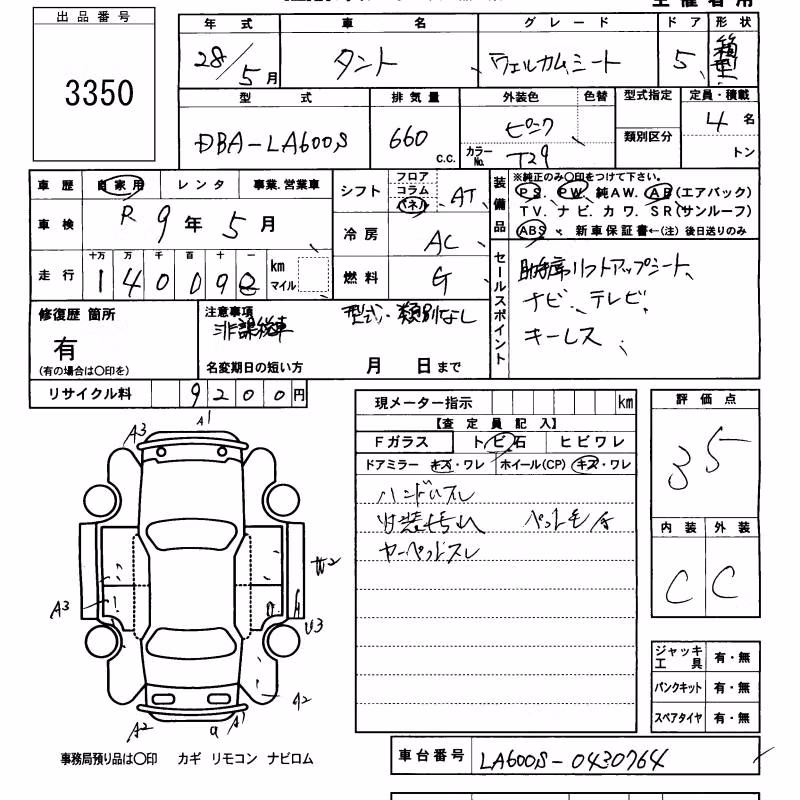 出品番号
3350
年式 車名 グレード ドア 形状
28/5月 タント ウェルカムシート 5 箱型
型式 排気量 外装色 色替 型式指定 定員・積載
DBA-LA600S 660 c.c. ピンク 類別区分 4名
カラーNo. T29 トン
車歴 自家用 レンタ 事業.営業車
車検 R 9年5月
走行 十万 万 千 百 十 一
140098 km マイル
シフト フロア コラム パネル AT
冷房 AC
燃料 G
装備品
※純正のみ〇印をつけて下さい。
PS. PW. 純AW. AB(エアバック)
TV. ナビ. カワ. SR(サンルーフ)
ABS 新車保証書←(注) 後日送りのみ
セールスポイント
助手席リフトアップシート、
ナビ、テレビ、
キーレス、
修復歴 箇所
有
(有の場合は〇印を)
注意事項 型式・類別なし
非課税車
名変期日の短い方 月 日まで
リサイクル料 9200円
現メーター指示 km
【査定員記入】
Fガラス トビ石 ヒビワレ
ドアミラー キズ・ワレ ホイール(CP) キズ・ワレ
ハンドルスレ
内装汚れ ペット毛有
カーペットスレ
評価点
35
内装 外装
C C
A1
A3
W2
A3
U3
A2
A2
A1
ジャッキ工具 有・無
パンクキット 有・無
スペアタイヤ 有・無
事務局預り品は〇印 カギ リモコン ナビロム
車台番号 LA600S-0430764